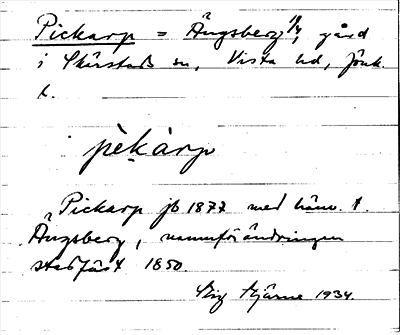 Pickarp = Ängsberg 1/4, gård
i Skärstads sn, Vista hd, Jönk.
l.
pèkàrp
Pickarp jb 1877 med hänv. t.
Ängsberg, namnförändringen
stadfäst 1850.
Stig Hjärne 1934.